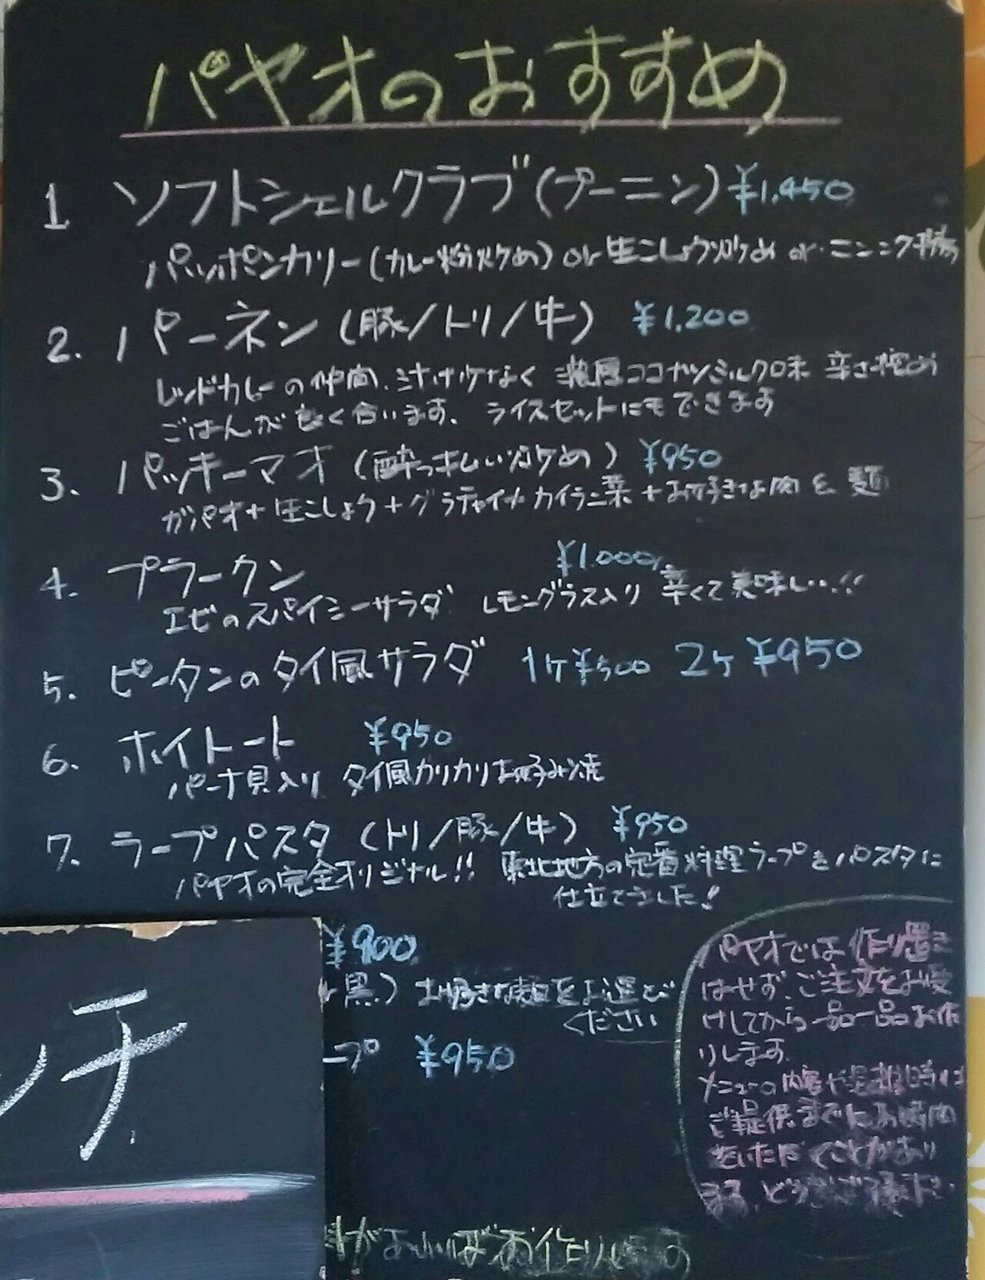 パヤオのおすすめ
1. ソフトシェルクラブ(プーニン) ¥1,450
パッポンカリー(カレー粉炒め) or 生こしょう炒め or ニンニク
2. パーネン (豚/トリ/牛) ¥1,200
レッドカレーの仲間、汁けなく 濃厚ココナツミルク味 辛さ控め
ごはんが良く合います。 ライスセットにもできます
3. パッキーマオ (酔っぱらい炒め) ¥950
ガパオ+生こしょう+グラチャイ+カイラン菜+お好きな肉 & 麺
4. プラークン ¥1,000
エビのスパイシーサラダ レモングラス入り 辛くて美味しい!!
5. ピータンのタイ風サラダ 1ヶ¥500 2ヶ¥950
6. ホイトート ¥950
パーナ貝入り タイ風カリカリお好み焼
7. ラープパスタ (トリ/豚/牛) ¥950
パヤオの完全オリジナル!! 東北地方の定番料理ラープをパスタに
仕立てました!
¥900
黒) お好きな麺をお選び
ください
ープ ¥950
ンチ
パヤオでは作り置き
はせず、ご注文をお受
けしてから一品一品お作
りします。
メニューの内容や
ご提供までにお時間
をいただくことがあり
ます。どうぞご
があればお作りします